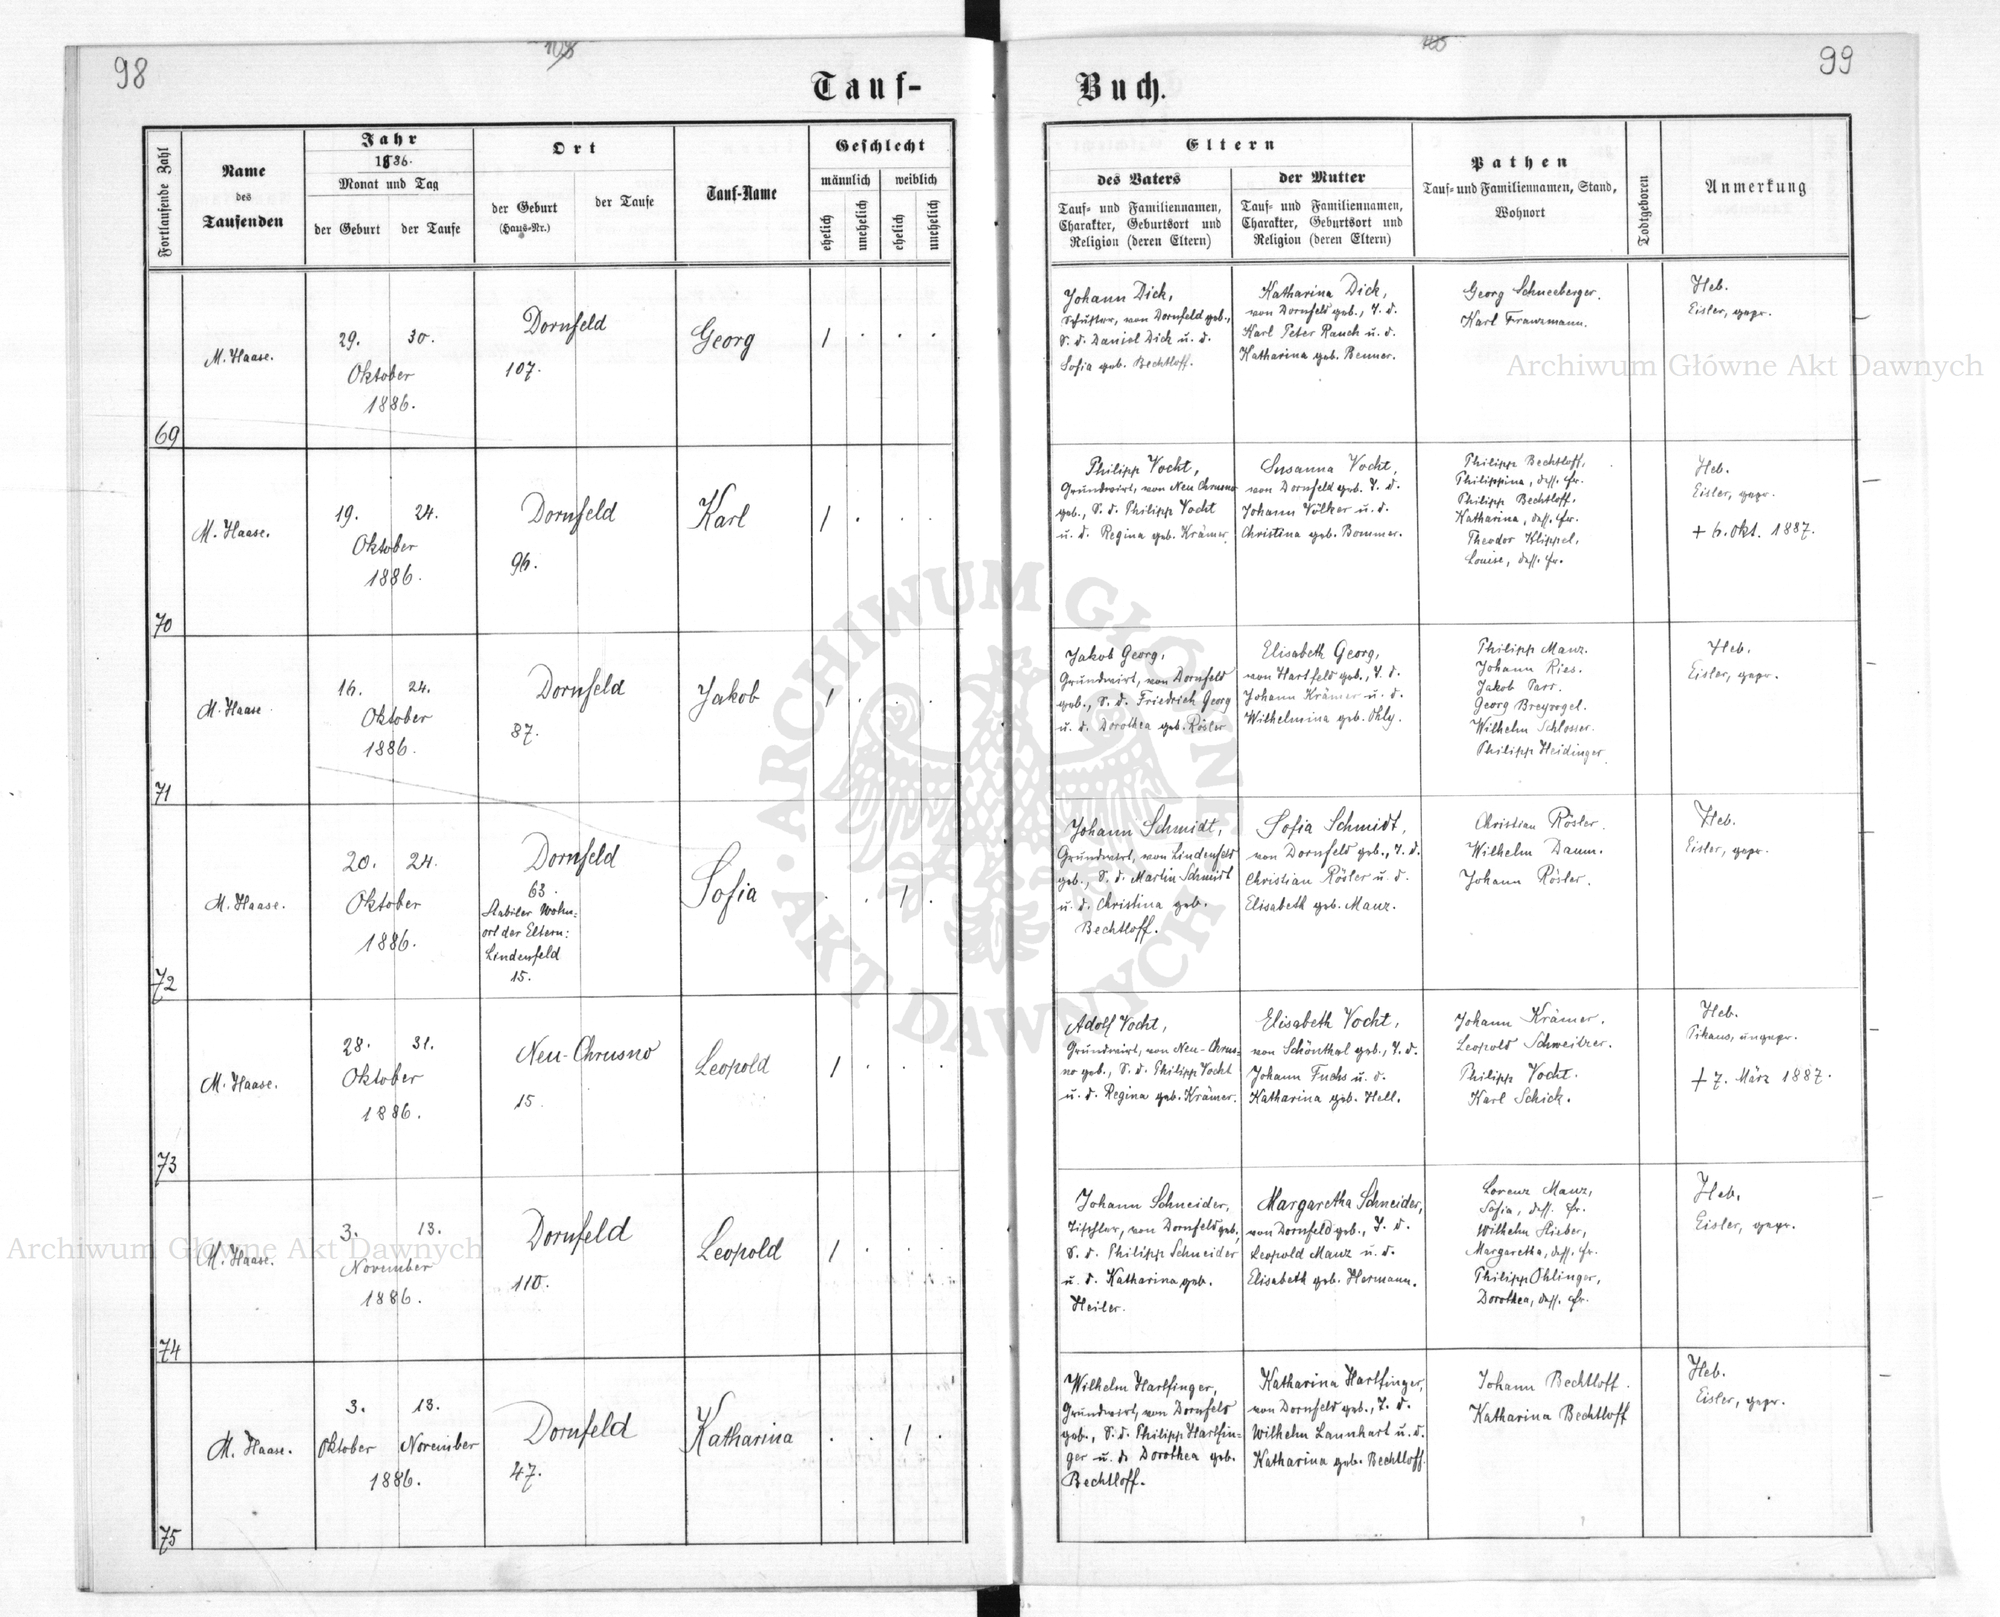 98
108
Tauf-
Buch.
105
99
Fortlaufende Zahl
Name
des
Taufenden
Jahr
1886.
Monat und Tag
der Geburt
der Taufe
Ort
der Geburt
(Haus-Nr.)
der Taufe
Tauf-Name
Geschlecht
männlich
weiblich
ehelich
unehelich
ehelich
unehelich
Eltern
des Vaters
Tauf- und Familiennamen,
Charakter, Geburtsort und
Religion (deren Eltern)
der Mutter
Tauf- und Familiennamen,
Charakter, Geburtsort und
Religion (deren Eltern)
Pathen
Tauf- und Familiennamen, Stand,
Wohnort
Todtgeboren
Anmerkung
69
M. Haase.
29. 30.
Oktober
1886.
Dornfeld
107.
Georg
1 . . .
Johann Dick,
Schuster, von Dornfeld geb.,
S. d. Daniel Dick u. d.
Sofia geb. Bechtloff.
Katharina Dick,
von Dornfeld geb., T. d.
Karl Peter Rauch u. d.
Katharina geb. Benner.
Georg Schneeberger.
Karl Franzmann.
Heb.
Eisler, gepr.
70
M. Haase.
19. 24.
Oktober
1886.
Dornfeld
96.
Karl
1 . . .
Philipp Vocht,
Grundwirt, von Neu Chrusno
geb., S. d. Philipp Vocht
u. d. Regina geb. Krämer.
Susanna Vocht,
von Dornfeld geb. T. d.
Johann Völker u. d.
Christina geb. Bommer.
Philipp Bechtloff,
Philippina, dess. Fr.
Philipp Bechtloff,
Katharina, dess. Fr.
Theodor Klippel,
Louise, dess. Fr.
Heb.
Eisler, gepr.
+ 6. Okt. 1887.
71
M. Haase
16. 24.
Oktober
1886.
Dornfeld
87.
Jakob
1 . . .
Jakob Georg,
Grundwirt, von Dornfeld
geb., S. d. Friedrich Georg
u. d. Dorothea geb. Rösler
Elisabeth Georg,
von Hartfeld geb., T. d.
Johann Krämer u. d.
Wilhelmina geb. Ohly.
Philipp Manz.
Johann Ries.
Jakob Parr.
Georg Breyvogel.
Wilhelm Schlosser.
Philipp Heidinger.
Heb.
Eisler, gepr.
72
M. Haase.
20. 24.
Oktober
1886.
Dornfeld
63.
Stabiler Wohn=
ort der Eltern:
Lindenfeld
15.
Sofia
. . 1 .
Johann Schmidt,
Grundwirt, von Lindenfeld
geb., S. d. Martin Schmidt
u. d. Christina geb.
Bechtloff.
Sofia Schmidt,
von Dornfeld geb., T. d.
Christian Rösler u. d.
Elisabeth geb. Manz.
Christian Rösler.
Wilhelm Daum.
Johann Rösler.
Heb.
Eisler, gepr.
73
M. Haase.
28. 31.
Oktober
1886.
Neu-Chrusno
15.
Leopold
1 . . .
Adolf Vocht,
Grundwirt, von Neu-Chrus=
no geb., S. d. Philipp Vocht
u. d. Regina geb. Krämer.
Elisabeth Vocht,
von Schönthal geb., T. d.
Johann Fuchs u. d.
Katharina geb. Hell.
Johann Krämer.
Leopold Schweitzer.
Philipp Vocht.
Karl Schick.
Heb.
Pikaus, ungepr.
+ 7. März 1887.
74
M. Haase.
3. 13.
November
1886.
Dornfeld
110.
Leopold
1 . . .
Johann Schneider,
Tischler, von Dornfeld geb.,
S. d. Philipp Schneider
u. d. Katharina geb.
Heiler.
Margaretha Schneider,
von Dornfeld geb., T. d.
Leopold Manz u. d.
Elisabeth geb. Hermann.
Lorenz Manz,
Sofia, dess. Fr.
Wilhelm Rieber,
Margaretha, dess. Fr.
Philipp Ohlinger,
Dorothea, dess. Fr.
Heb.
Eisler, gepr.
75
M. Haase.
3. 13.
Oktober November
1886.
Dornfeld
47.
Katharina
. . 1 .
Wilhelm Hartfinger,
Grundwirt, von Dornfeld
geb., S. d. Philipp Hartfin-
ger u. d. Dorothea geb.
Bechtloff.
Katharina Hartfinger,
von Dornfeld geb., T. d.
Wilhelm Launhart u. d.
Katharina geb. Bechtloff.
Johann Bechtloff.
Katharina Bechtloff
Heb.
Eisler, gepr.
Archiwum Główne Akt Dawnych
Archiwum Główne Akt Dawnych
ARCHIWUM GŁÓWNE • AKT DAWNYCH •